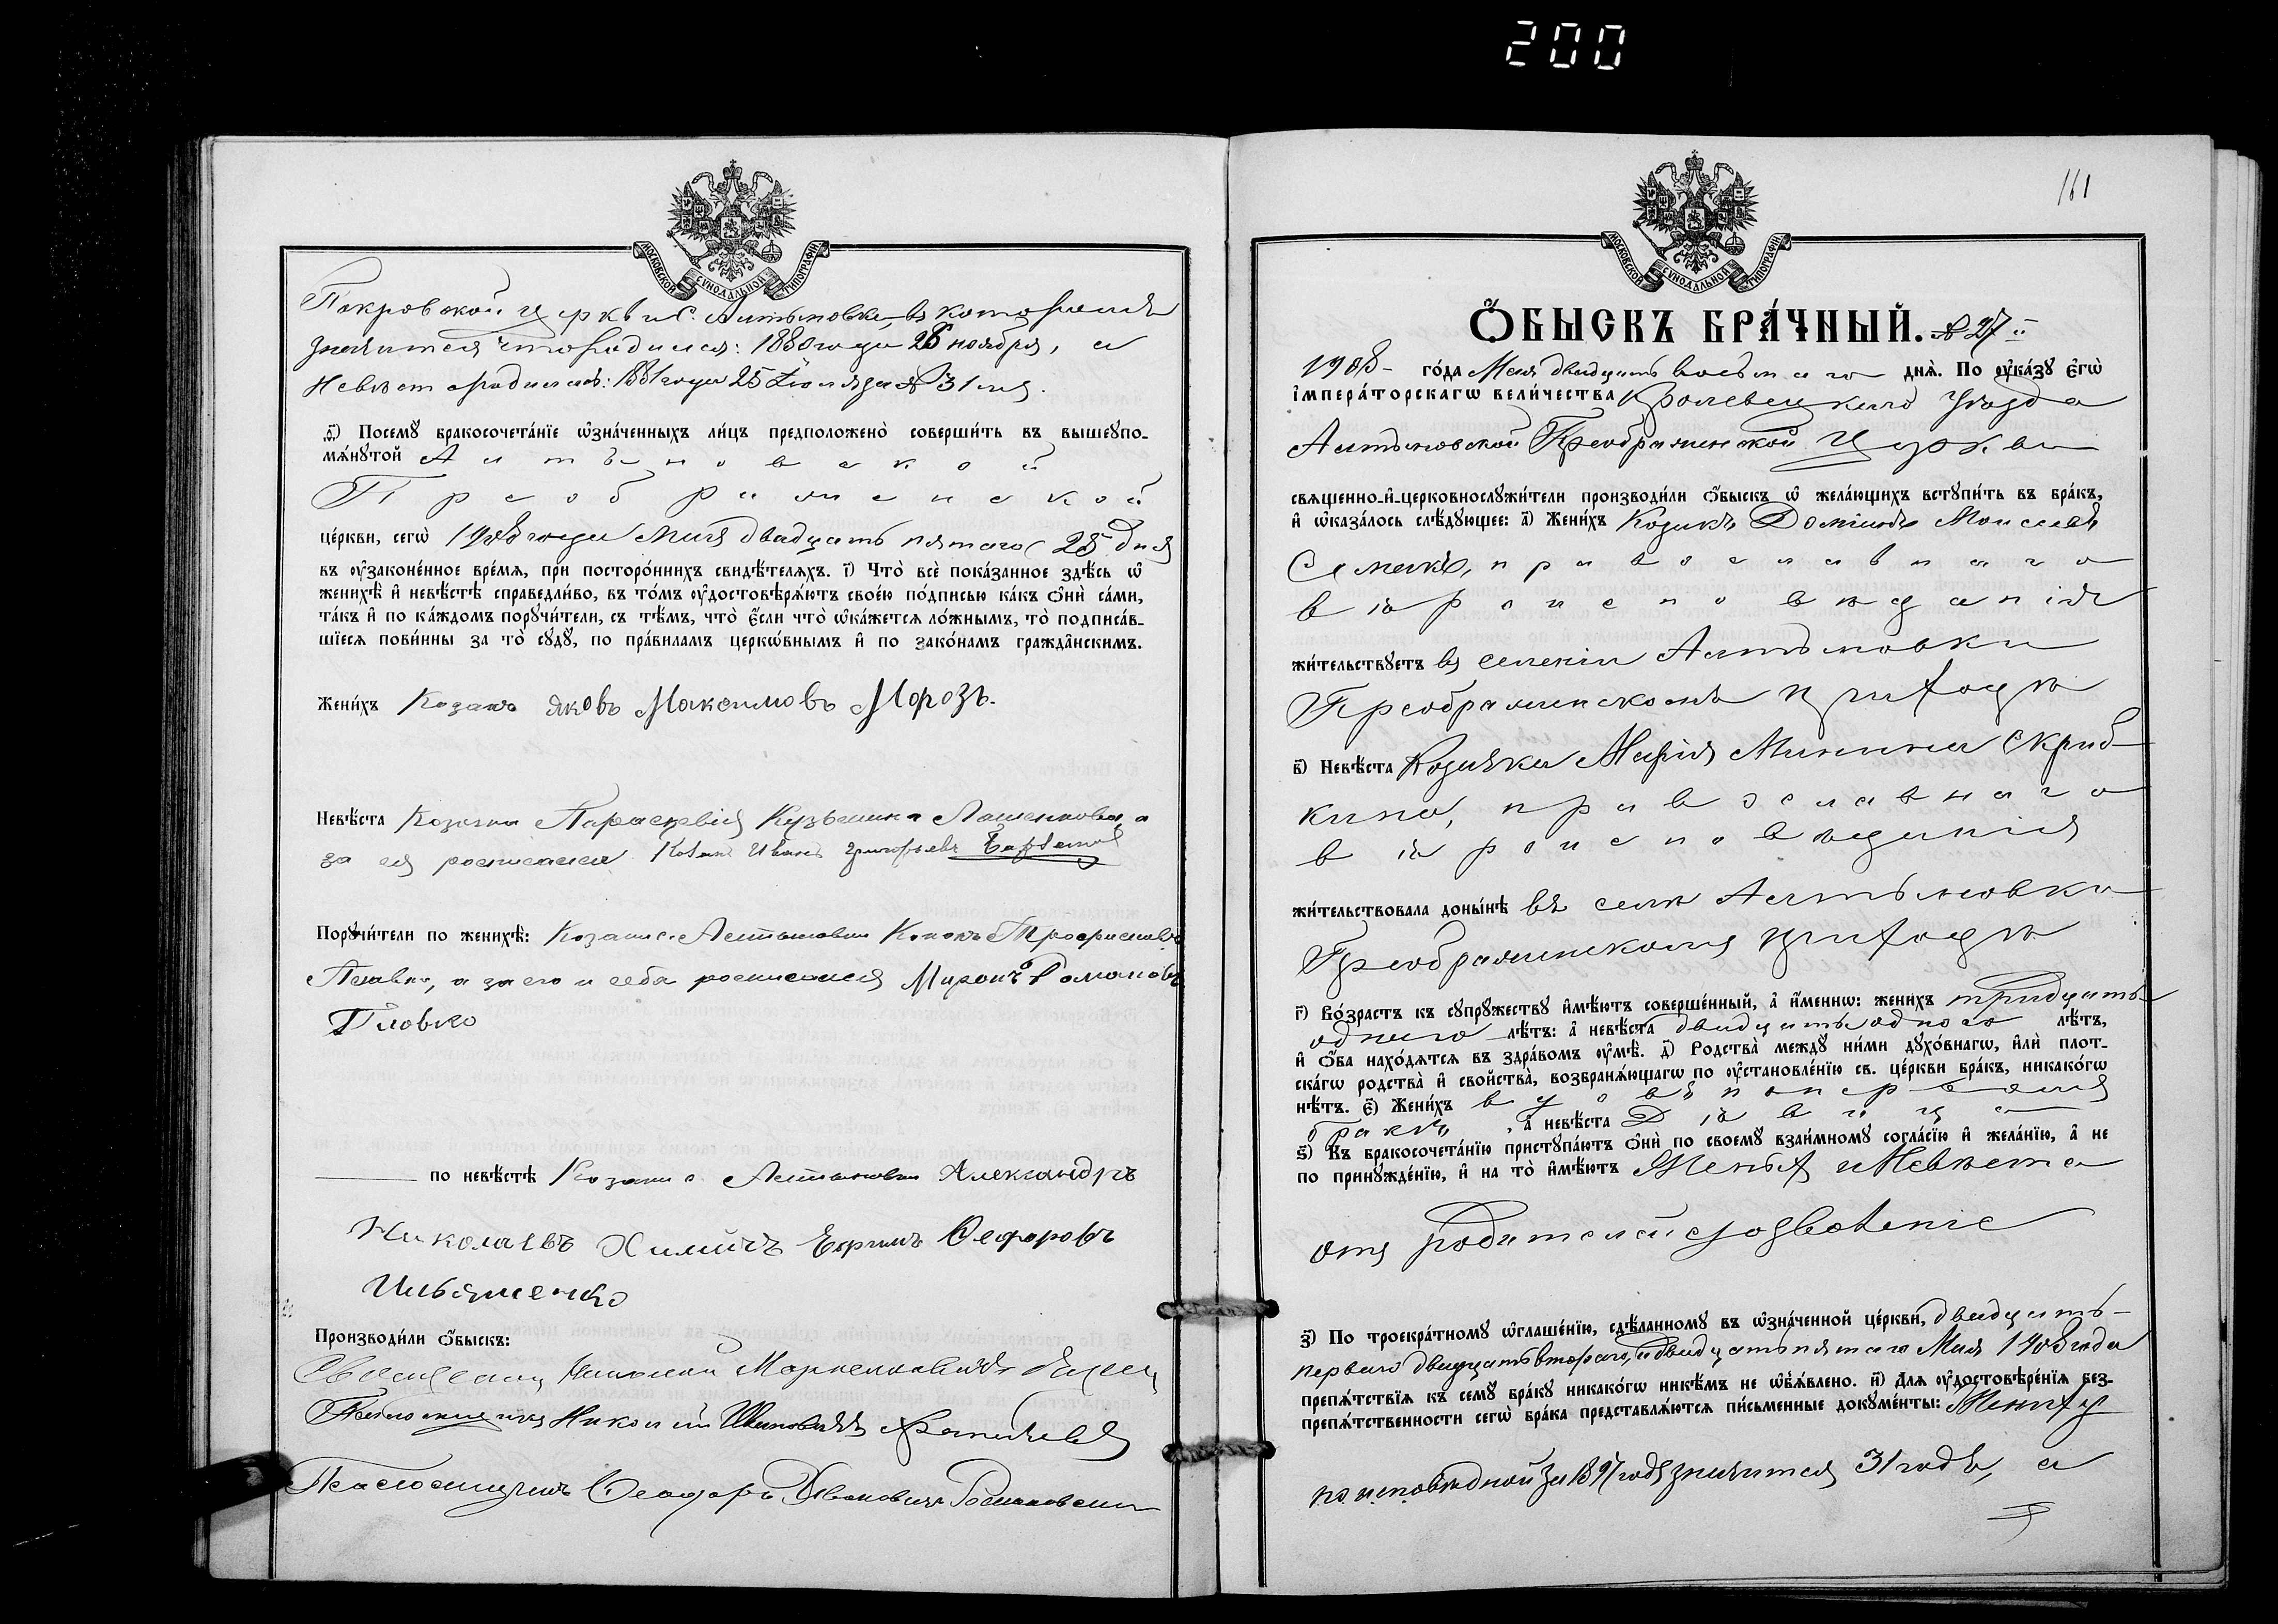 200
МОСКОВСКОЙ СѴНОДАЛЬНОЙ ТИПОГРАФІИ.
Покровской церкви С. Алтыновки, въ которомъ
значится что родился: 1880 года 26 ноября, а
Невѣста родилась: 1881 года 25 Іюля за № 31мъ.
ѳ҃) Посемꙋ̀ бракосочета́нїе ѡ҆зна́ченныхъ ли́цъ предположено̀ соверши́ть въ вышеꙋпо-
мѧ́нꙋтой Алтыновской
Преображенской
це́ркви, сегѡ̀ 1908 года Мая двадцать пятого 25 дня
въ ᲂу҆законе́нное вре́мѧ, при посторо́ннихъ свидѣ́телѧхъ. і҃) Что̀ всѐ пока́занное здѣ́сь ѡ҆
женихѣ̀ и҆ невѣ́стѣ справедли́во, въ то́мъ ᲂу҆достовѣрѧ́ютъ свое́ю по́дписью ка́къ ѻ҆нѝ са́ми,
та́къ и҆ по ка́ждомъ порꙋчи́тели, съ тѣ́мъ, что̀ є҆́сли что̀ ѡ҆ка́жетсѧ ло́жнымъ, то̀ подписа́в-
шїесѧ пови́нны за то̀ сꙋдꙋ̀, по пра́виламъ церкѡ́внымъ и҆ по зако́намъ гражда̂нскимъ.
Жени́хъ Козакъ Яковъ Максимовъ Морозъ.
Невѣ́ста Козачка Параскевія Кузьмина Лашенкова, а
за ея росписался Козакъ Иванъ Григорьевъ
Порꙋчи́тели по женихѣ̀: Козаки с. Алтыновки Кононъ Трофимовъ
Пловко, а за его и себя росписался Миронъ Романовъ
Пловко
по невѣ́стѣ Козаки с. Алтыновки Александръ
Николаевъ Химичъ Ефимъ Ѳедоровъ
Ильяшенко
Производи́ли ѻ҆́быскъ:
Священникъ Николай Маркелловичъ
Псаломщикъ Николай Ивановичъ
Псаломщикъ Ѳеодоръ Ивановичъ
161
МОСКОВСКОЙ СѴНОДАЛЬНОЙ ТИПОГРАФІИ.
Ѻ҆́БЫСКЪ БРА́ЧНЫЙ. № 27й
1908 го́да Мая двадцать восьмаго днѧ̀. По ᲂу҆ка́зꙋ є҆гѡ̀
і҆мпера́торскагѡ вели́чества Кролевецкаго уѣзда
Алтыновской Преображенской Церкви
свѧщенно-и҆-церковнослꙋжи́тели производи́ли ѻ҆́быскъ ѡ҆ жела́ющихъ встꙋпи́ть въ бра́къ,
и҆ ѡ҆каза́лось слѣ́дꙋющее: а҃) Жени́хъ Козакъ Доміанъ Моисеевъ
Семакъ, православнаго
вѣроисповѣданія
жи́тельствꙋетъ въ селеніи Алтыновки
Преображенскомъ приходѣ
в҃) Невѣ́ста Козачка Марія Минина Скриб-
кина, православнаго
вѣроисповѣданія
жи́тельствовала доны́нѣ въ селѣ Алтыновки
Преображенскомъ приходѣ
г҃) Во́зрастъ къ сꙋпрꙋ́жествꙋ и҆мѣ́ютъ соверше́нный, а҆ и҆́меннѡ: жени́хъ тридцать
одного лѣ́тъ: а҆ невѣ́ста двадцать одного лѣ́тъ,
и҆ ѻ҆́ба нахо́дѧтсѧ въ здра́вомъ ᲂу҆мѣ̀. д҃) Родства̀ междꙋ̀ ни́ми дꙋхо́внагѡ, и҆лѝ плот-
ска́гѡ родства̀ и҆ сво́йства, возбранѧ́ющагѡ по ᲂу҆становле́нїю св. це́ркви бра́къ, никако́гѡ
нѣ́тъ. є҃) Жени́хъ вдовъ по первомъ
бракѣ, а҆ невѣ́ста Дѣвица
ѕ҃) Въ бракосочета́нїю пристꙋпа́ютъ ѻ҆нѝ по своемꙋ̀ взаи́мномꙋ согла́сїю и҆ жела́нїю, а҆ не
по принꙋжде́нїю, и҆ на то̀ и҆мѣ́ютъ Женихъ и Невѣста
отъ родителей дозволеніе
з҃) По троекра́тномꙋ ѡ҆глаше́нїю, сдѣ́ланномꙋ въ ѡ҆зна́ченной це́ркви, двадцать-
перваго двадцать втораго, и двадцать пятаго Мая 1908 года
препѧ́тствїѧ къ семꙋ̀ бра́кꙋ никако́гѡ никѣ́мъ не ѡ҆б̾ѧ́влено. и҃) Длѧ ᲂу҆достовѣре́нїѧ без-
препѧ́тственности сегѡ̀ бра́ка представлѧ́ютсѧ пи́сьменные докꙋме́нты: Жениху
по исповѣдной за 1897 годъ значится 31 годъ, а